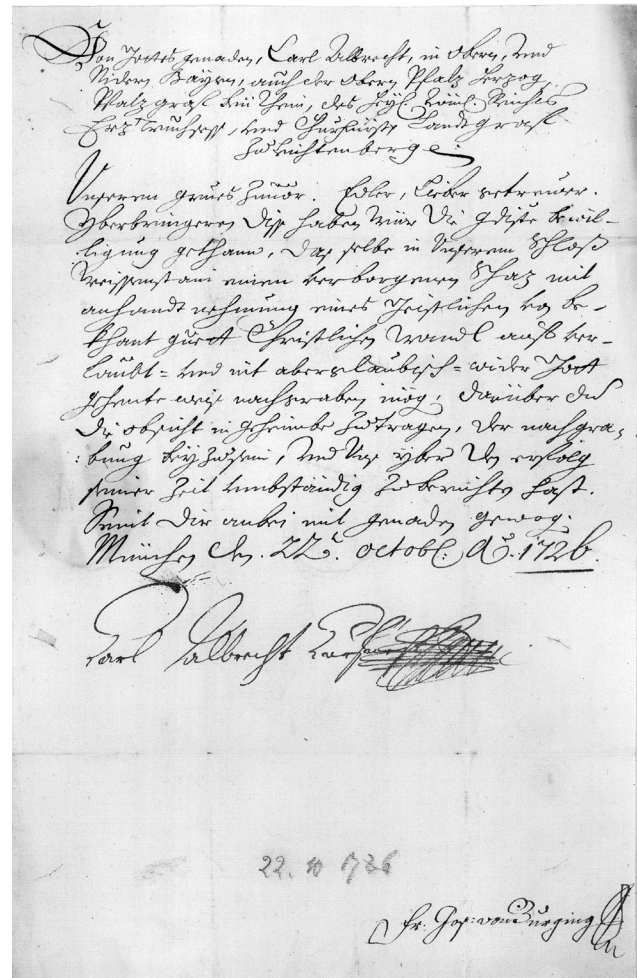 Von Gottes genaden, Carl Albrecht, in Obern, und
Nidern Bayrn, auch der Obern Pfalz Herzog,
Pfalzgraf bei Rhein, des Heyl. Röm. Reichs
Erztruchsess, und Churfürst, Landtgraf
zu Leichtenberg
Unseren grues zuvor. Edler, Lieber getreuer.
Yberbringeren diss haben wür die gdiste bewil-
ligung gethann, das selbe in Unserem Schloß
Weissenstain einen verborgenen Schaz mit
anhandtnehmung eines Geistlichen von be-
khant guett Christlichen Wandl auf er-
laubt= und nit aberglaubisch= wider Gott
gehente weis nachgraben mög, darüber du
die obsicht in geheimbe zu tragen, der nachgra-
bung beyzusein, und Uns yber den erfolg
seiner Zeit umbständig zu berichten hast.
Seint dir anbei mit genaden gewog.
München den 22t. octobr: Ao. 1726.
Carl Albrecht Churfürst
22. 10 1726
Fr. Jos: von